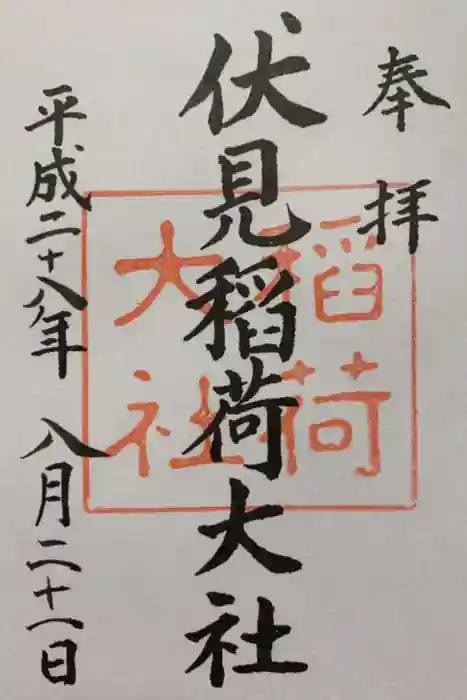 奉拝
伏見稲荷大社
平成二十八年 八月二十一日
稲荷
大社